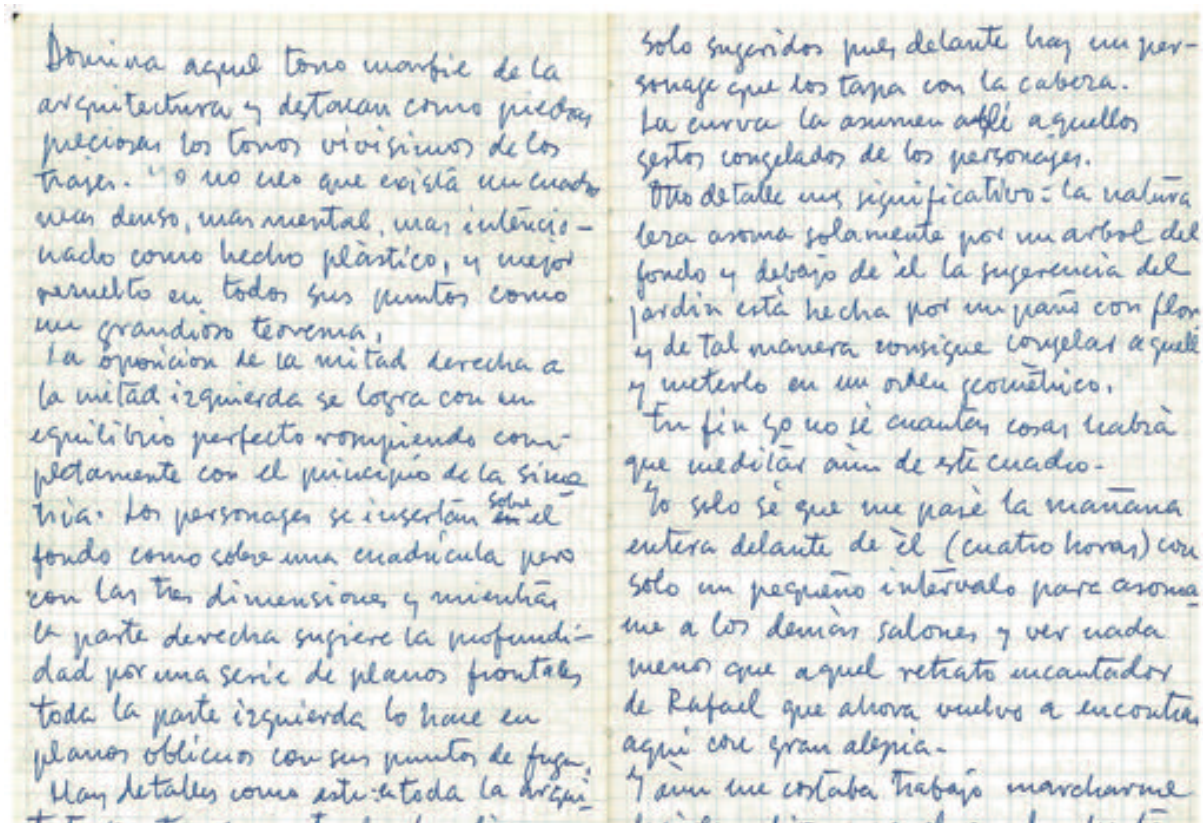 Domina aquel tono marfil de la
arquitectura y destacan como piedras
preciosas los tonos vivisimos de los
trajes. Yo no creo que exista un cuadro
mas denso, mas mental, mas intencio-
nado como hecho plàstico, y mejor
resuelto en todos sus puntos como
un grandioso teorema,
La oposicion de la mitad derecha a
la mitad izquierda se logra con un
equilibrio perfecto rompiendo com-
pletamente con el principio de la sime
tria. Los personages se insertan sobre en el
fondo como sobre una cuadricula pero
con las tres dimensiones y mientras
la parte derecha sugiere la profundi-
dad por una serie de planos frontales
toda la parte izquierda lo hace en
planos oblicuos con sus puntos de fuga.
Hay detalles como este: toda la arqui
solo sugeridos pues delante hay un per-
sonage que los tapa con la cabeza.
La curva la asumen allí aquellos
gestos congelados de los personages.
Otro detalle muy significativo: la natura
leza asoma solamente por un arbol del
fondo y debajo de èl la sugerencia del
jardin està hecha por un paño con flor
y de tal manera consigue congelar aquell
y meterlo en un orden geomètrico.
En fin yo no sè cuantas cosas habrà
que meditar aùn de este cuadro.
Yo solo sè que me pasè la mañana
entera delante de èl (cuatro horas) con
solo un pequeño intervalo para asoma
me a los demàs salones y ver nada
menos que aquel retrato encantador
de Rafael que ahora vuelvo a encontra
aqui con gran alegria.
Y aùn me costaba trabajo marcharme